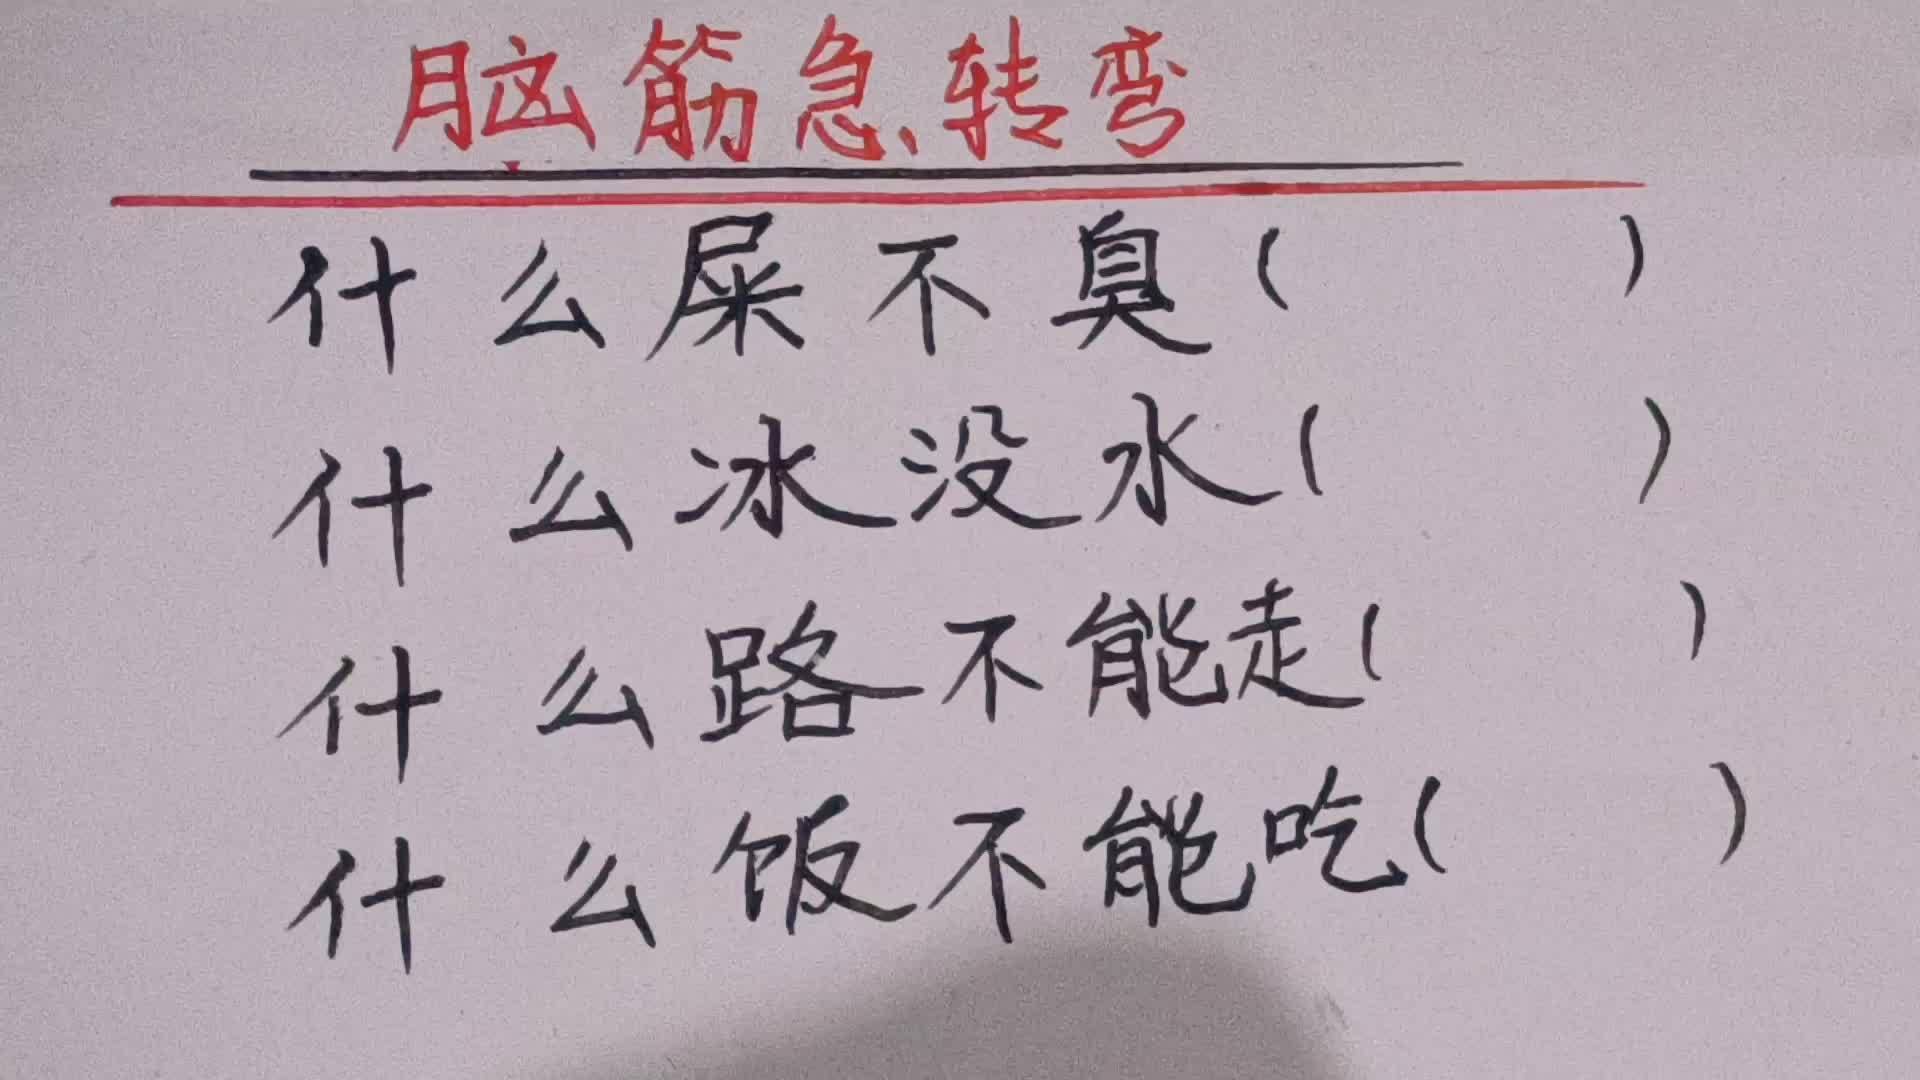 脑筋急转弯
什么屎不臭（ ）
什么冰没水（ ）
什么路不能走（ ）
什么饭不能吃（ ）